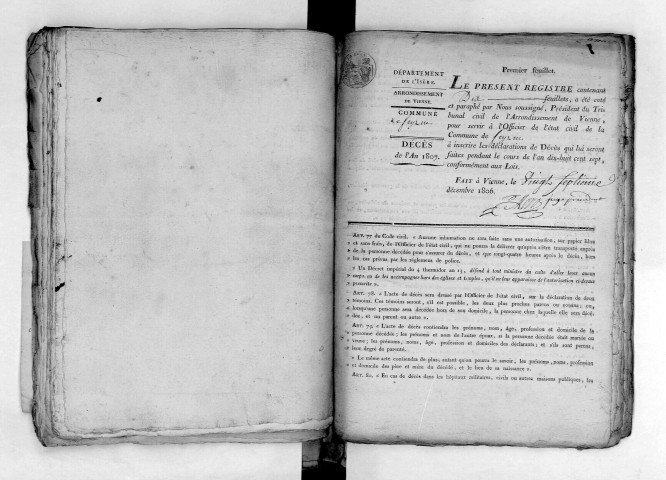 Premier feuillet.
DÉPARTEMENT
DE L'ISÈRE.
ARRONDISSEMENT
DE VIENNE.
COMMUNE
de Seyzin
DÉCÈS
de l'An 1807.
LE PRESENT REGISTRE contenant
Dix feuillets, a été coté
et paraphé par Nous soussigné, Président du Tri-
bunal civil de l'Arrondissement de Vienne,
pour servir à l'Officier de l'état civil de la
Commune de Seyzin
à inscrire les déclarations de Décès qui lui seront
faites pendant le cours de l'an dix-huit cent sept,
conformément aux Lois.
FAIT à Vienne, le Vingt Septième
décembre 1806.
ART. 77 du Code civil. « Aucune inhumation ne sera faite sans une autorisation, sur papier libre
« et sans frais, de l'Officier de l'état civil, qui ne pourra la délivrer qu'après s'être transporté auprès
« de la personne décédée pour s'assurer du décès, et que vingt-quatre heures après le décès, hors
« les cas prévus par les réglemens de police.
« Un Décret impérial du 4 thermidor an 13, défend à tout ministre du culte d'aller lever aucun
« corps ou de les accompagner hors des églises et temples, qu'il ne leur apparaisse de l'autorisation ci-dessus
« prescrite ».
ART. 78. « L'acte de décès sera dressé par l'Officier de l'état civil, sur la déclaration de deux
« témoins. Ces témoins seront, s'il est possible, les deux plus proches parens ou voisins, ou,
« lorsqu'une personne sera décédée hors de son domicile, la personne chez laquelle elle sera décé-
« dée, et un parent ou autre ».
ART. 79. « L'acte de décès contiendra les prénoms, nom, âge, profession et domicile de la
« personne décédée; les prénoms et nom de l'autre époux, si la personne décédée était mariée ou
« veuve; les prénoms, noms, âge, profession et domiciles des déclarans, et s'ils sont parens,
« leur degré de parenté.
« Le même acte contiendra de plus, autant qu'on pourra le savoir, les prénoms, noms, profession
« et domicile des père et mère du décédé, et le lieu de sa naissance ».
ART. 80. « En cas de décès dans les hôpitaux militaires, civils ou autres maisons publiques, les